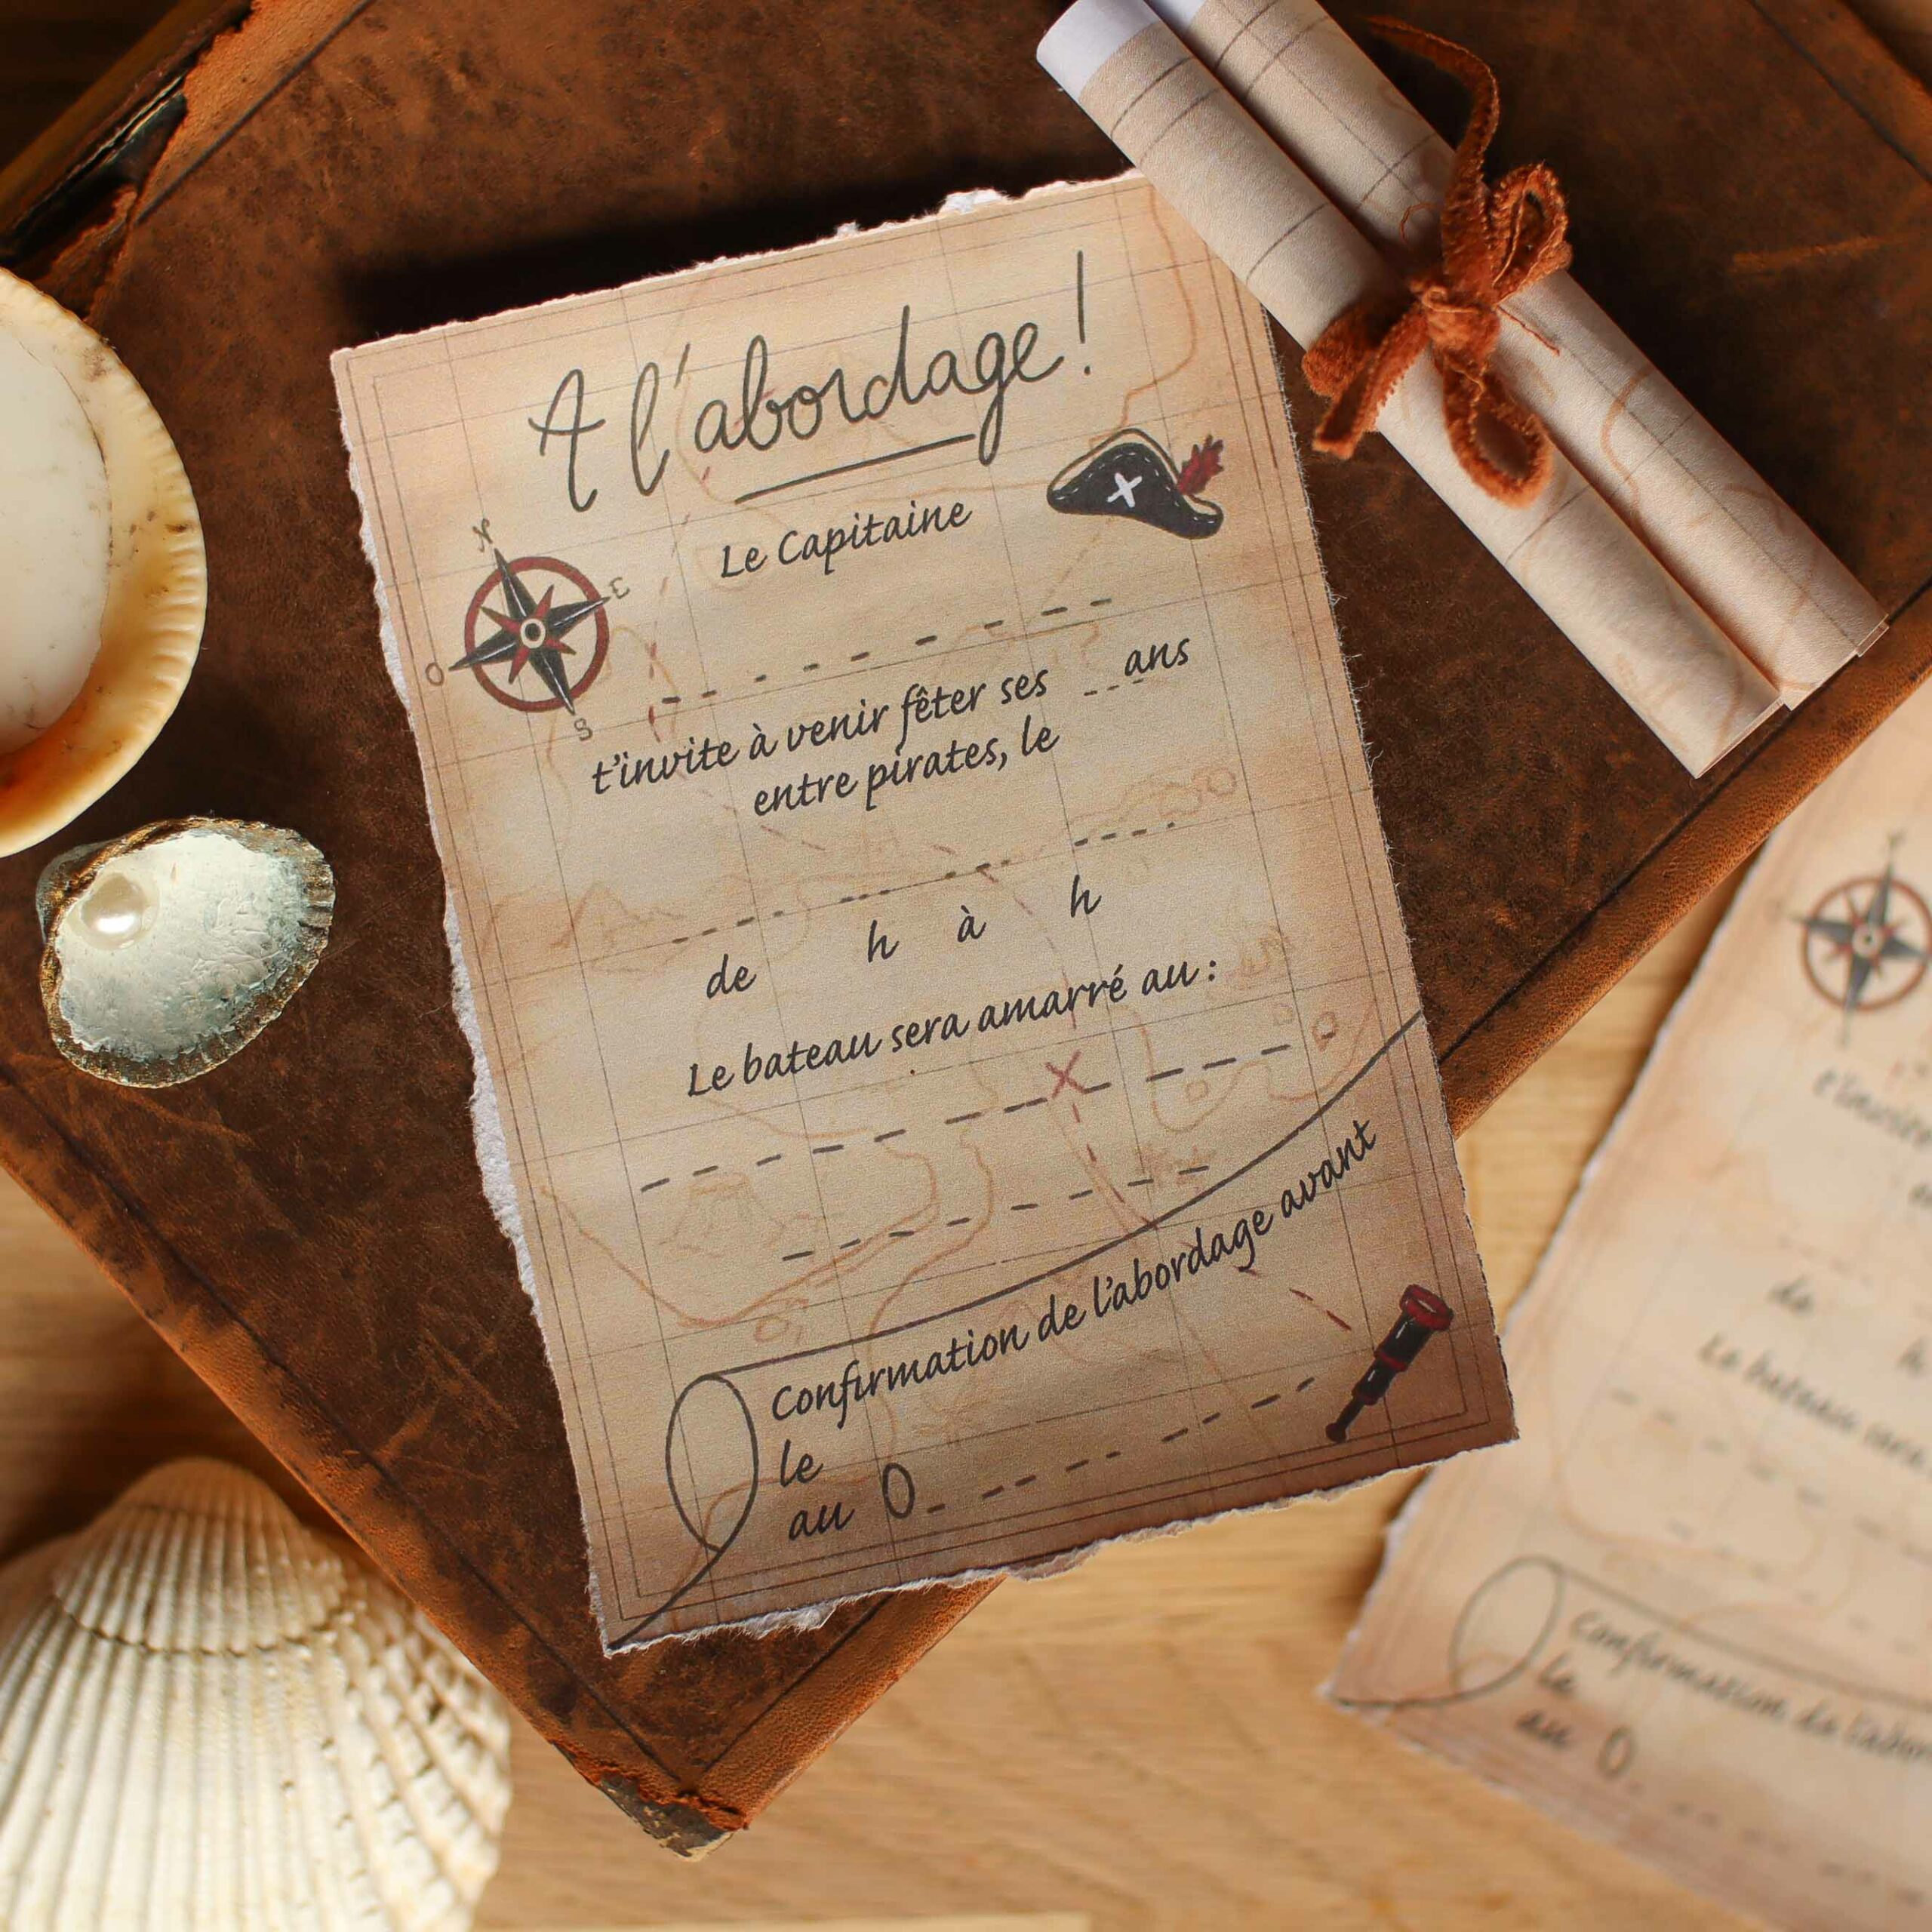 A l'abordage !
Le Capitaine
N
E
O
S
t'invite à venir fêter ses ans
entre pirates, le
de h à h
Le bateau sera amarré au :
Confirmation de l'abordage avant
le
au 0
t'invite
de h
Le bateau sera
Confirmation de l'abor
le
au 0